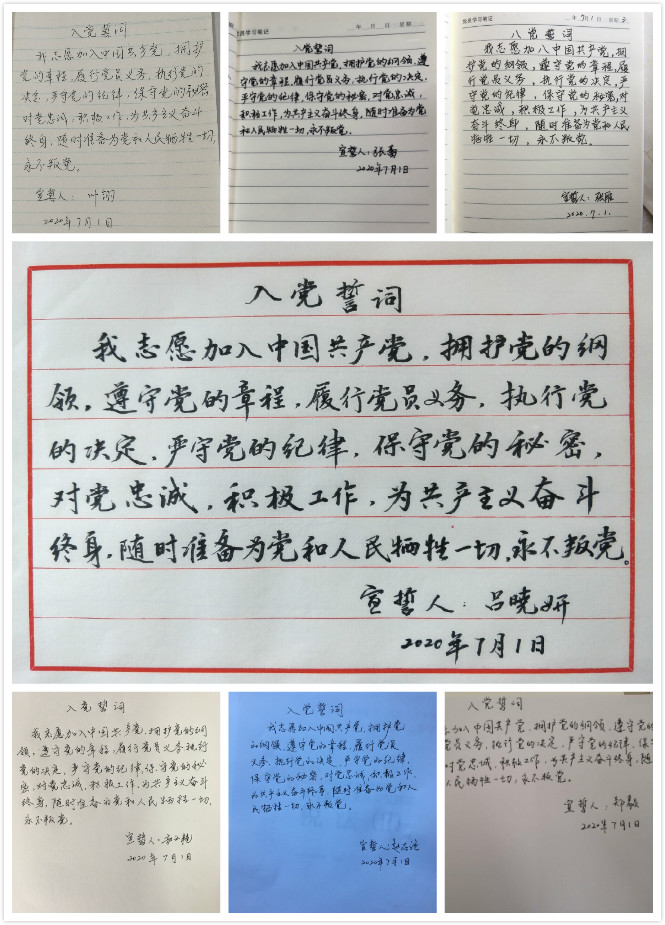 入党誓词
我志愿加入中国共产党，拥护
党的章程，履行党员义务，执行党的
决定，严守党的纪律，保守党的秘密
对党忠诚，积极工作，为共产主义奋斗
终身，随时准备为党和人民牺牲一切，
永不叛党。
宣誓人：叶
2020年7月1日
党员学习笔记
年 月 日 星期
入党誓词
我志愿加入中国共产党，拥护党的纲领，遵
守党的章程，履行党员义务，执行党的决定，
严守党的纪律，保守党的秘密，对党忠诚，
积极工作，为共产主义奋斗终身，随时准备为党
和人民牺牲一切，永不叛党。
宣誓人：张
2020年7月1日
党员学习笔记
年 7月1日 星期三
入党誓词
我志愿加入中国共产党，拥
护党的纲领，遵守党的章程，履
行党员义务，执行党的决定，严
守党的纪律，保守党的秘密，对
党忠诚，积极工作，为共产主义
奋斗终身，随时准备为党和人民
牺牲一切，永不叛党。
宣誓人：
2020.7.1.
入党誓词
我志愿加入中国共产党，拥护党的纲
领，遵守党的章程，履行党员义务，执行党
的决定，严守党的纪律，保守党的秘密，
对党忠诚，积极工作，为共产主义奋斗
终身，随时准备为党和人民牺牲一切，永不叛党。
宣誓人：吕晓妍
2020年7月1日
入党誓词
我志愿加入中国共产党，拥护党的纲
领，遵守党的章程，履行党员义务执行
党的决定，严守党的纪律，保守党的秘
密，对党忠诚，积极工作，为共产主义奋斗
终身，随时准备为党和人民牺牲一切，
永不叛党。
宣誓人：
2020年7月1日
入党誓词
我志愿加入中国共产党，拥护党
的纲领，遵守党的章程，履行党员
义务，执行党的决定，严守党的纪律，
保守党的秘密，对党忠诚，积极工作，
为共产主义奋斗终身，随时准备为党和人
民牺牲一切，永不叛党。
宣誓人：
2020年7月1日
入党誓词
加入中国共产党，拥护党的纲领，遵守党的
党员义务，执行党的决定，严守党的纪律，保
对党忠诚，积极工作，为共产主义奋斗终身，随
人民牺牲一切，永不叛党。
宣誓人：郑毅
2020年7月1日